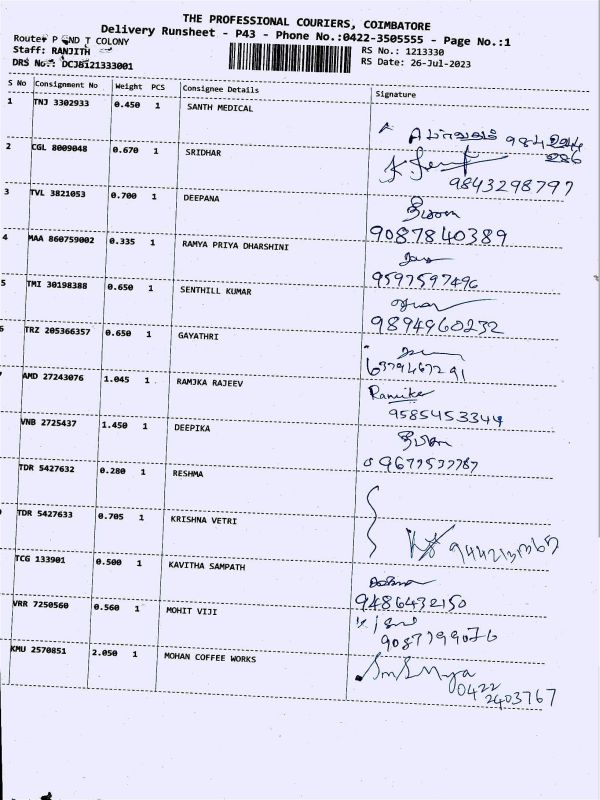 THE PROFESSIONAL COURIERS, COIMBATORE
Delivery Runsheet - P43 - Phone No.:0422-3505555 - Page No.:1
Route: P ND T COLONY
RS No.: 1213330
Staff: RANJITH
RS Date: 26-Jul-2023
DRS No.: DCJB121333001
S No Consignment No Weight PCS Consignee Details Signature
1 TNJ 3302933 0.450 1 SANTH MEDICAL
2 CGL 8009048 0.670 1 SRIDHAR
9843298797
3 TVL 3821053 0.700 1 DEEPANA
9087840389
4 MAA 860759002 0.335 1 RAMYA PRIYA DHARSHINI
9597597496
5 TMI 30198388 0.650 1 SENTHILL KUMAR
9894960232
6 TRZ 205366357 0.650 1 GAYATHRI
AMD 27243076 1.045 1 RAMJKA RAJEEV
9585453344
VNB 2725437 1.450 1 DEEPIKA
TDR 5427632 0.280 1 RESHMA
TDR 5427633 0.705 1 KRISHNA VETRI
TCG 133901 0.500 1 KAVITHA SAMPATH
9486432150
VRR 7250560 0.560 1 MOHIT VIJI
KMU 2570851 2.050 1 MOHAN COFFEE WORKS
0422
2403767